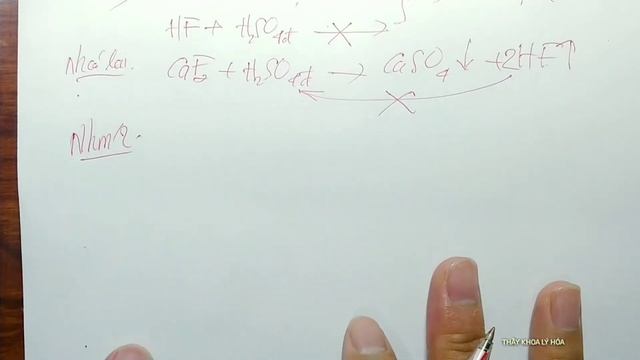 HF + H₂SO₄đđ
Nhắc lại. CaF₂ + H₂SO₄đđ → CaSO₄ ↓ + 2HF↑
THẦY KHOA LÝ HÓA